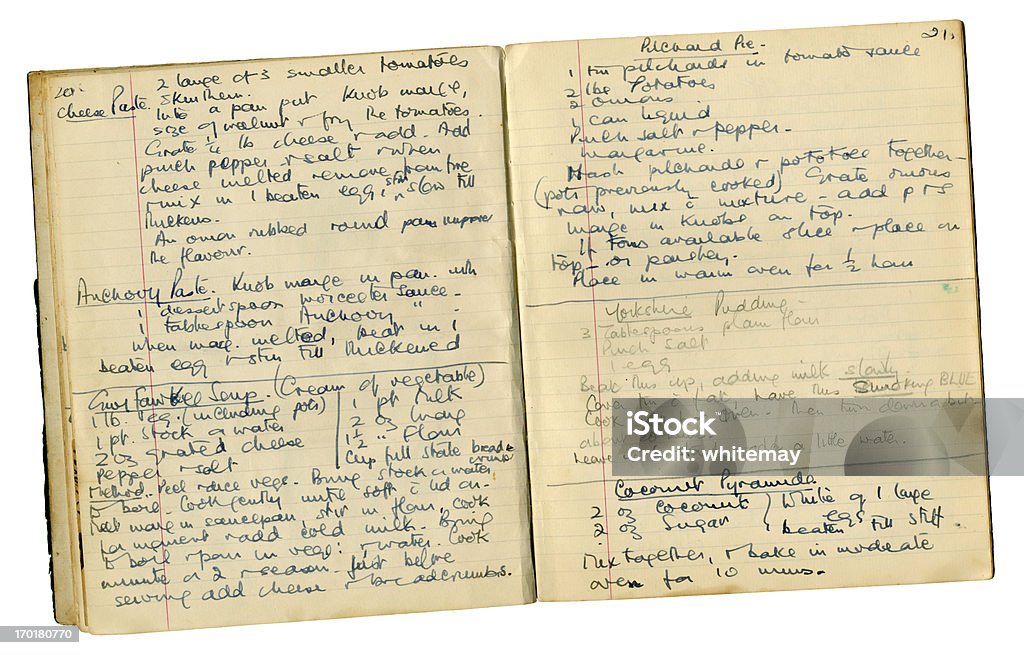 20.
2 large or 3 smaller tomatoes
Cheese Paste. Skin them.
Into a pan put knob marge,
size of walnut & fry the tomatoes.
Grate ¼ lb cheese & add. Add
pinch pepper & salt & when
cheese melted remove from fire
& mix in 1 beaten egg, stir slow till
thickens.
An onion rubbed round pan improves
the flavour.
Anchovy Paste. Knob marge in pan. with
1 dessertspoon worcester sauce -
1 tablespoon Anchovy " -
when marg. melted, beat in 1
beaten egg & stir till thickened
Guy Fawkes Soup. (Cream of vegetable)
1 lb. veg. (including pots)
1 pt. stock or water
2 oz grated cheese
Pepper & salt
1 pt milk
2 oz marg
1½ " flour
Cup full stale bread crumbs
Method. Peel & dice vegs. Bring stock or water
to boil. Cook gently until soft c lid on.
Melt marg in saucepan, stir in flour, cook
for moment & add cold milk. Bring
to boil & pour in vegs: & water. Cook
minute or 2 & season. Just before
serving add cheese & breadcrumbs.
21.
Pilchard Pie -
1 tin pilchards in tomato sauce
2 lbs Potatoes
2 onions
1 can liquid
Pinch salt & pepper -
margarine.
Mash pilchards & potatoes together -
(pots previously cooked) Grate onions
raw, mix c mixture - add p & s
marge in knobs on top.
If Toms available slice & place on
top - or parsley.
Place in warm oven for ½ hour
Yorkshire Pudding -
3 Tablespoons plain flour
Pinch salt
1 egg
Beat this up, adding milk slowly.
Cover tin c fat, have this smoking BLUE
Cook oven. Then turn down a bit
about
Leave add a little water.
Coconut Pyramids
2 oz Coconut
2 oz Sugar
White of 1 large
egg
beaten till stiff.
Mix together, & bake in moderate
oven for 10 mins.
iStock
Credit: whitemay
170180770